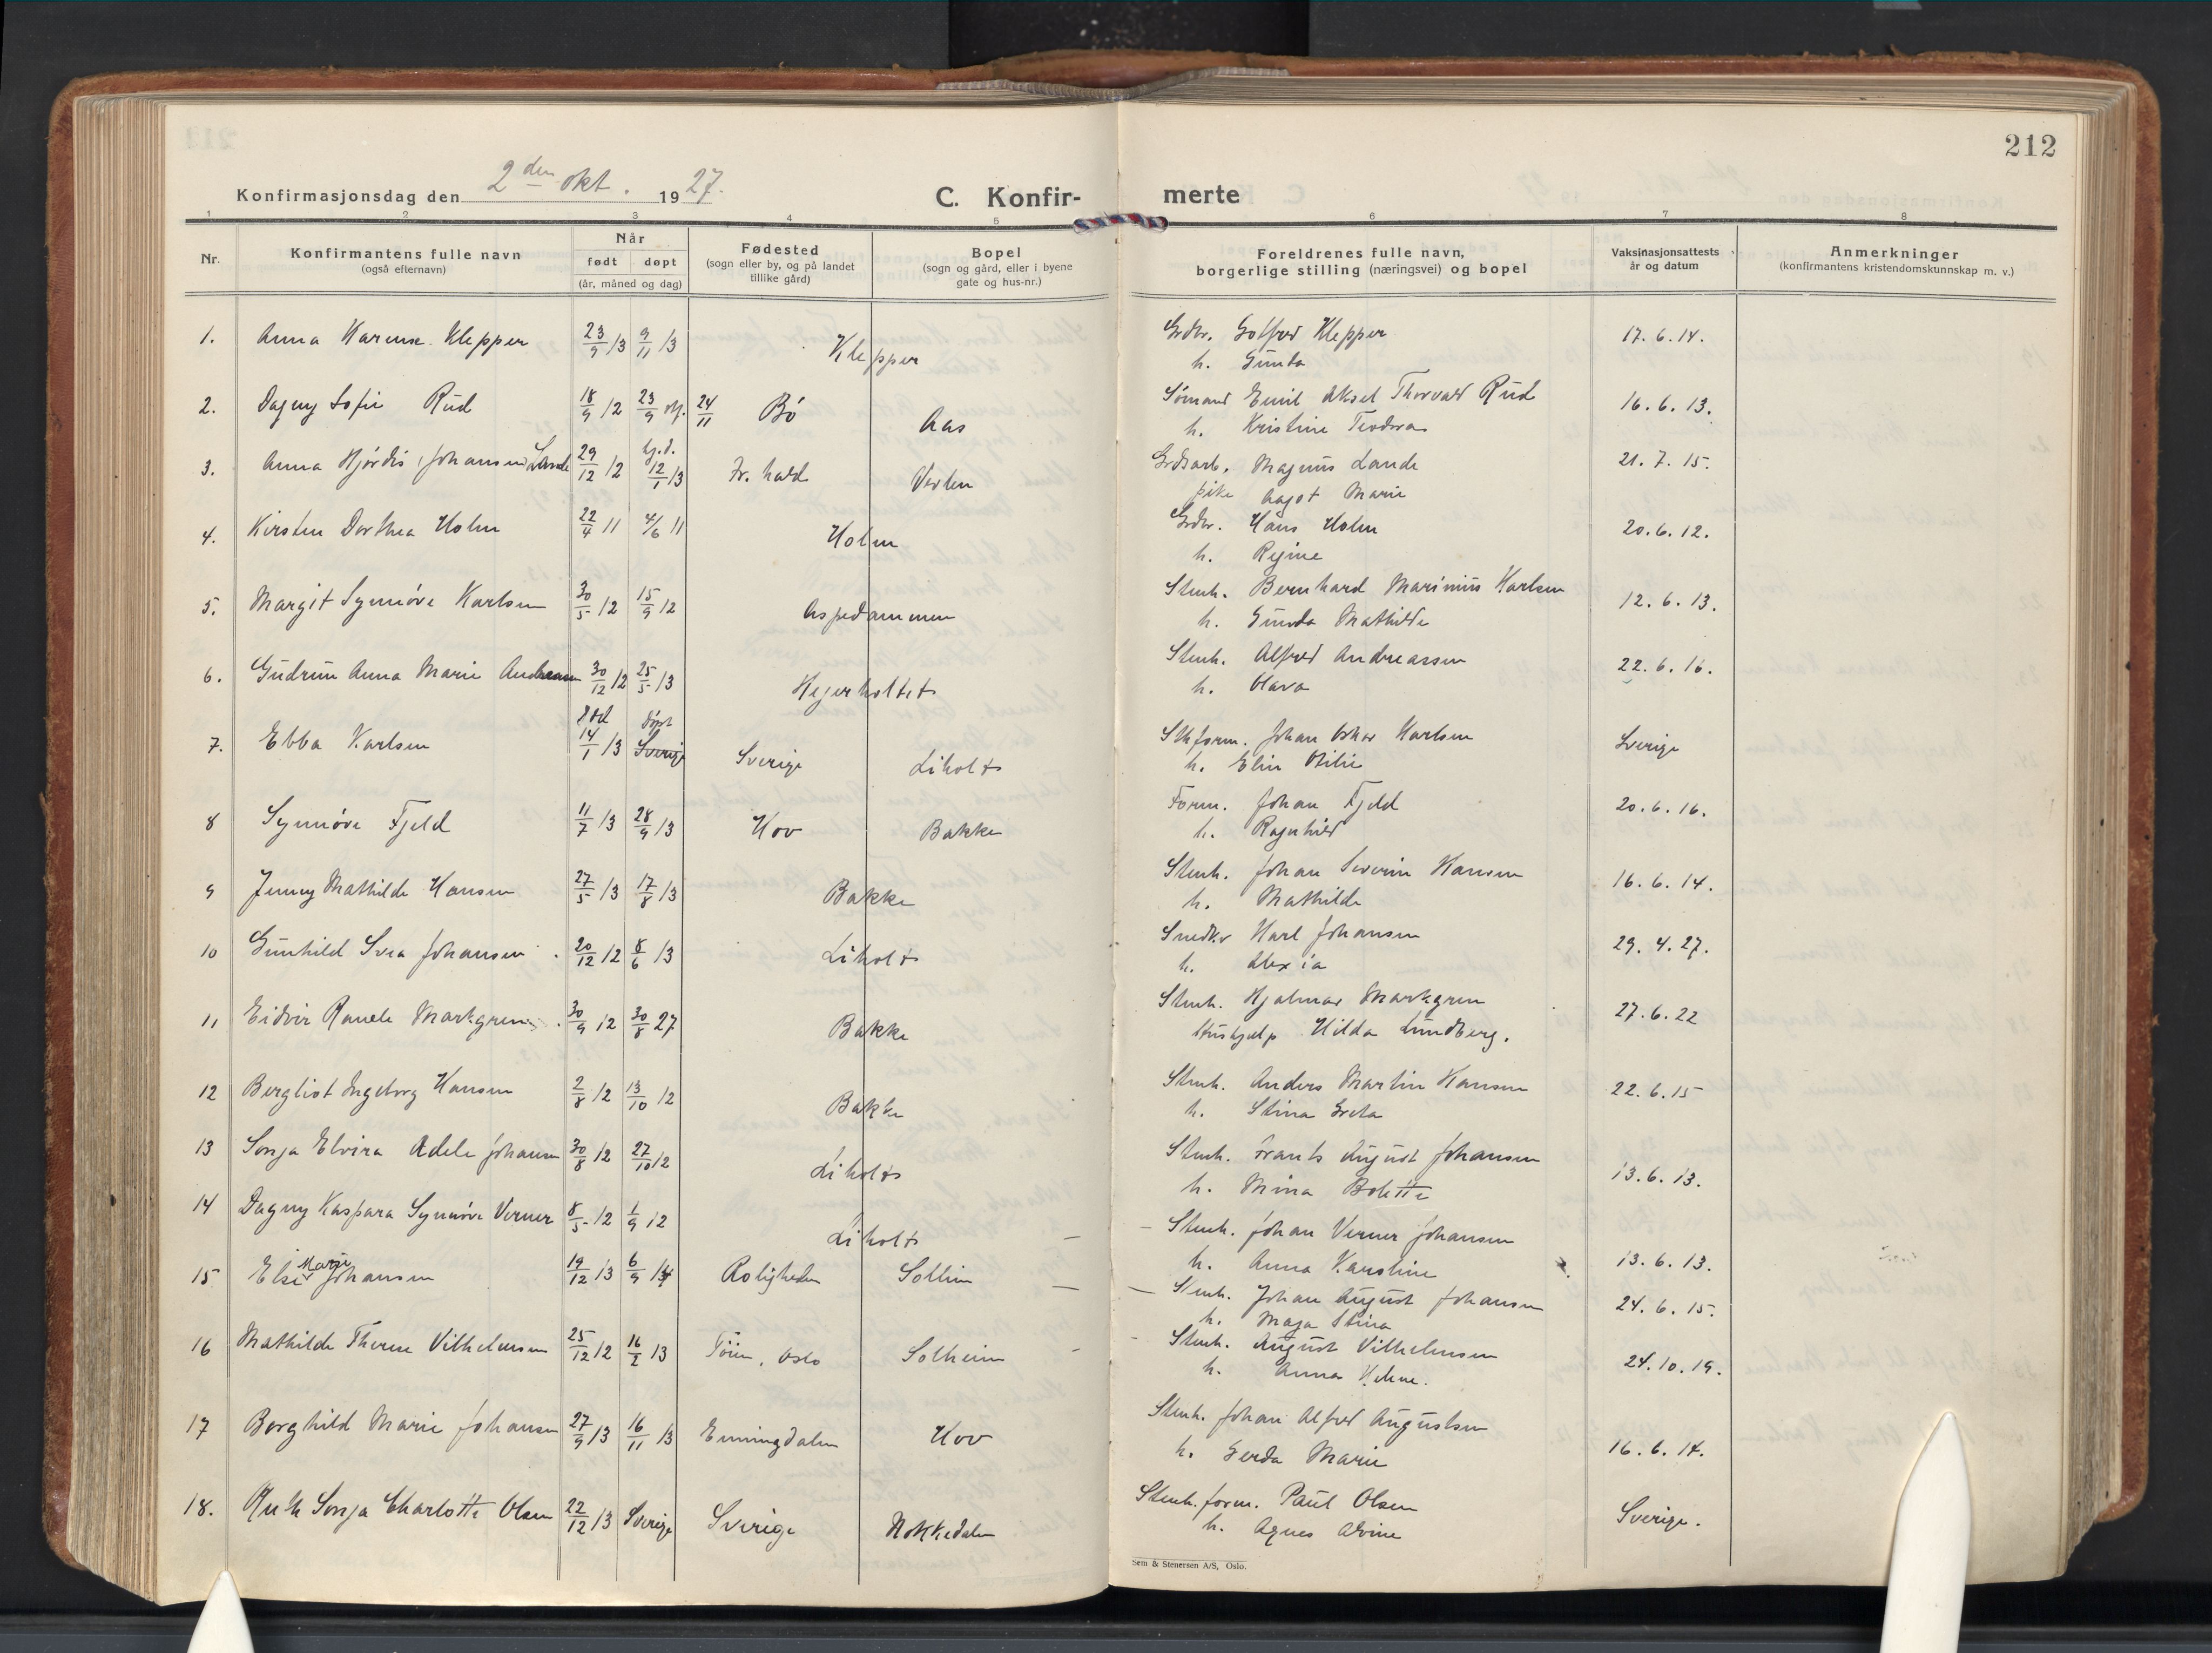 212
Konfirmasjonsdag den 2den okt. 1927.
C. Konfir-
merte
1 2 3 4 5 6 7 8
Nr.
Konfirmantens fulle navn
(også efternavn)
Når
født døpt
(år, måned og dag)
Fødested
(sogn eller by, og på landet
tillike gård)
Bopel
(sogn og gård, eller i byene
gate og hus-nr.)
Foreldrenes fulle navn,
borgerlige stilling (næringsvei) og bopel
Vaksinasjonsattests
år og datum
Anmerkninger
(konfirmantens kristendomskunnskap m. v.)
1. Anna Karense Klepper 23/9 13 9/11 13 Klepper Grdbr. Gotfred Klepper 17.6.14.
h. Gunda
2. Dagny Sofie Rud 18/9 12 23/9 24/11 Bø Aas Sømand Emil Aksel Thorvald Rud 16.6.13.
h. Kristine Teodora
3. Anna Hjørdis Johansen Lande 29/12 12 hj.d. 12/1 13 Fr.hald Verlen Grdsarb. Magnus Lande 21.7.15.
pike Aagot Marie
4. Kirsten Dorthea Holm 22/4 11 4/6 11 Holm Grdbr. Hans Holm 20.6.12.
h. Regine
5. Margit Synnøve Karlsen 30/5 12 15/9 12 Aspedammen Stenh. Bernhard Marinius Karlsen 12.6.13.
h. Gunda Mathilde
6. Gudrun Anna Marie Andreassen 30/12 12 25/5 13 Hejerholtet Stenh. Alfred Andreassen 22.6.16.
h. Olava
7. Ebba Karlsen 14/1 13 døpt Sverige Sverige Liholt Johan Oskar Karlsen Sverige
h. Elin Otilie
8 Synnøve Fjeld 11/7 13 28/9 13 Hov Bakke Form. Johan Fjeld 20.6.16.
h. Ragnhild
9 Jenny Mathilde Hansen 27/5 13 17/8 13 Bakke Stenh. Johan Severin Hansen 16.6.14.
h. Mathilde
10 Gunhild Svea Johansen 20/12 12 8/6 13 Liholt Snedk. Karl Johansen 29.4.27.
h. Alexia
11 Eidvir Markgren 30/9 12 30/8 27 Bakke Stenh. Hjalmar Markgren 27.6.22
Hushjælp Hilda Lundberg.
12 Bergliot Ingeborg Hansen 2/8 12 13/10 12 Bakke Stenh. Anders Martin Hansen 22.6.15
h. Stina Greta
13 Sonja Elvira Adele Johansen 30/8 12 27/10 12 Liholt Stenh. Frants August Johansen 13.6.13.
h. Mina Bolette
14 Dagny Kaspara Synnøve Verner 8/5 12 1/9 12 Liholt Stenh. Johan Verner Johansen 13.6.13.
h. Anna Karoline
15 Else Marie Johansen 19/12 13 6/9 14 Roligheden Sollien Stenh. Johan August Johansen 24.6.15.
h. Maja Stina
16 Mathilde Therese Vilhelmsen 25/12 12 16/2 13 Tøien, Oslo Solheim Stenh. August Vilhelmsen 24.10.19.
h. Anna Helene.
17 Borghild Marie Johansen 27/9 13 16/11 13 Enningdalen Hov Stenh. Johan Alfred Augustsen 16.6.14.
h. Gerda Marie
18. Ruth Sonja Charlotte Olsen 22/12 13 Sverige Sverige Nokkedalen Stenh.form. Paul Olsen Sverige.
h. Agnes Alvine
Sem & Stenersen A/S, Oslo.